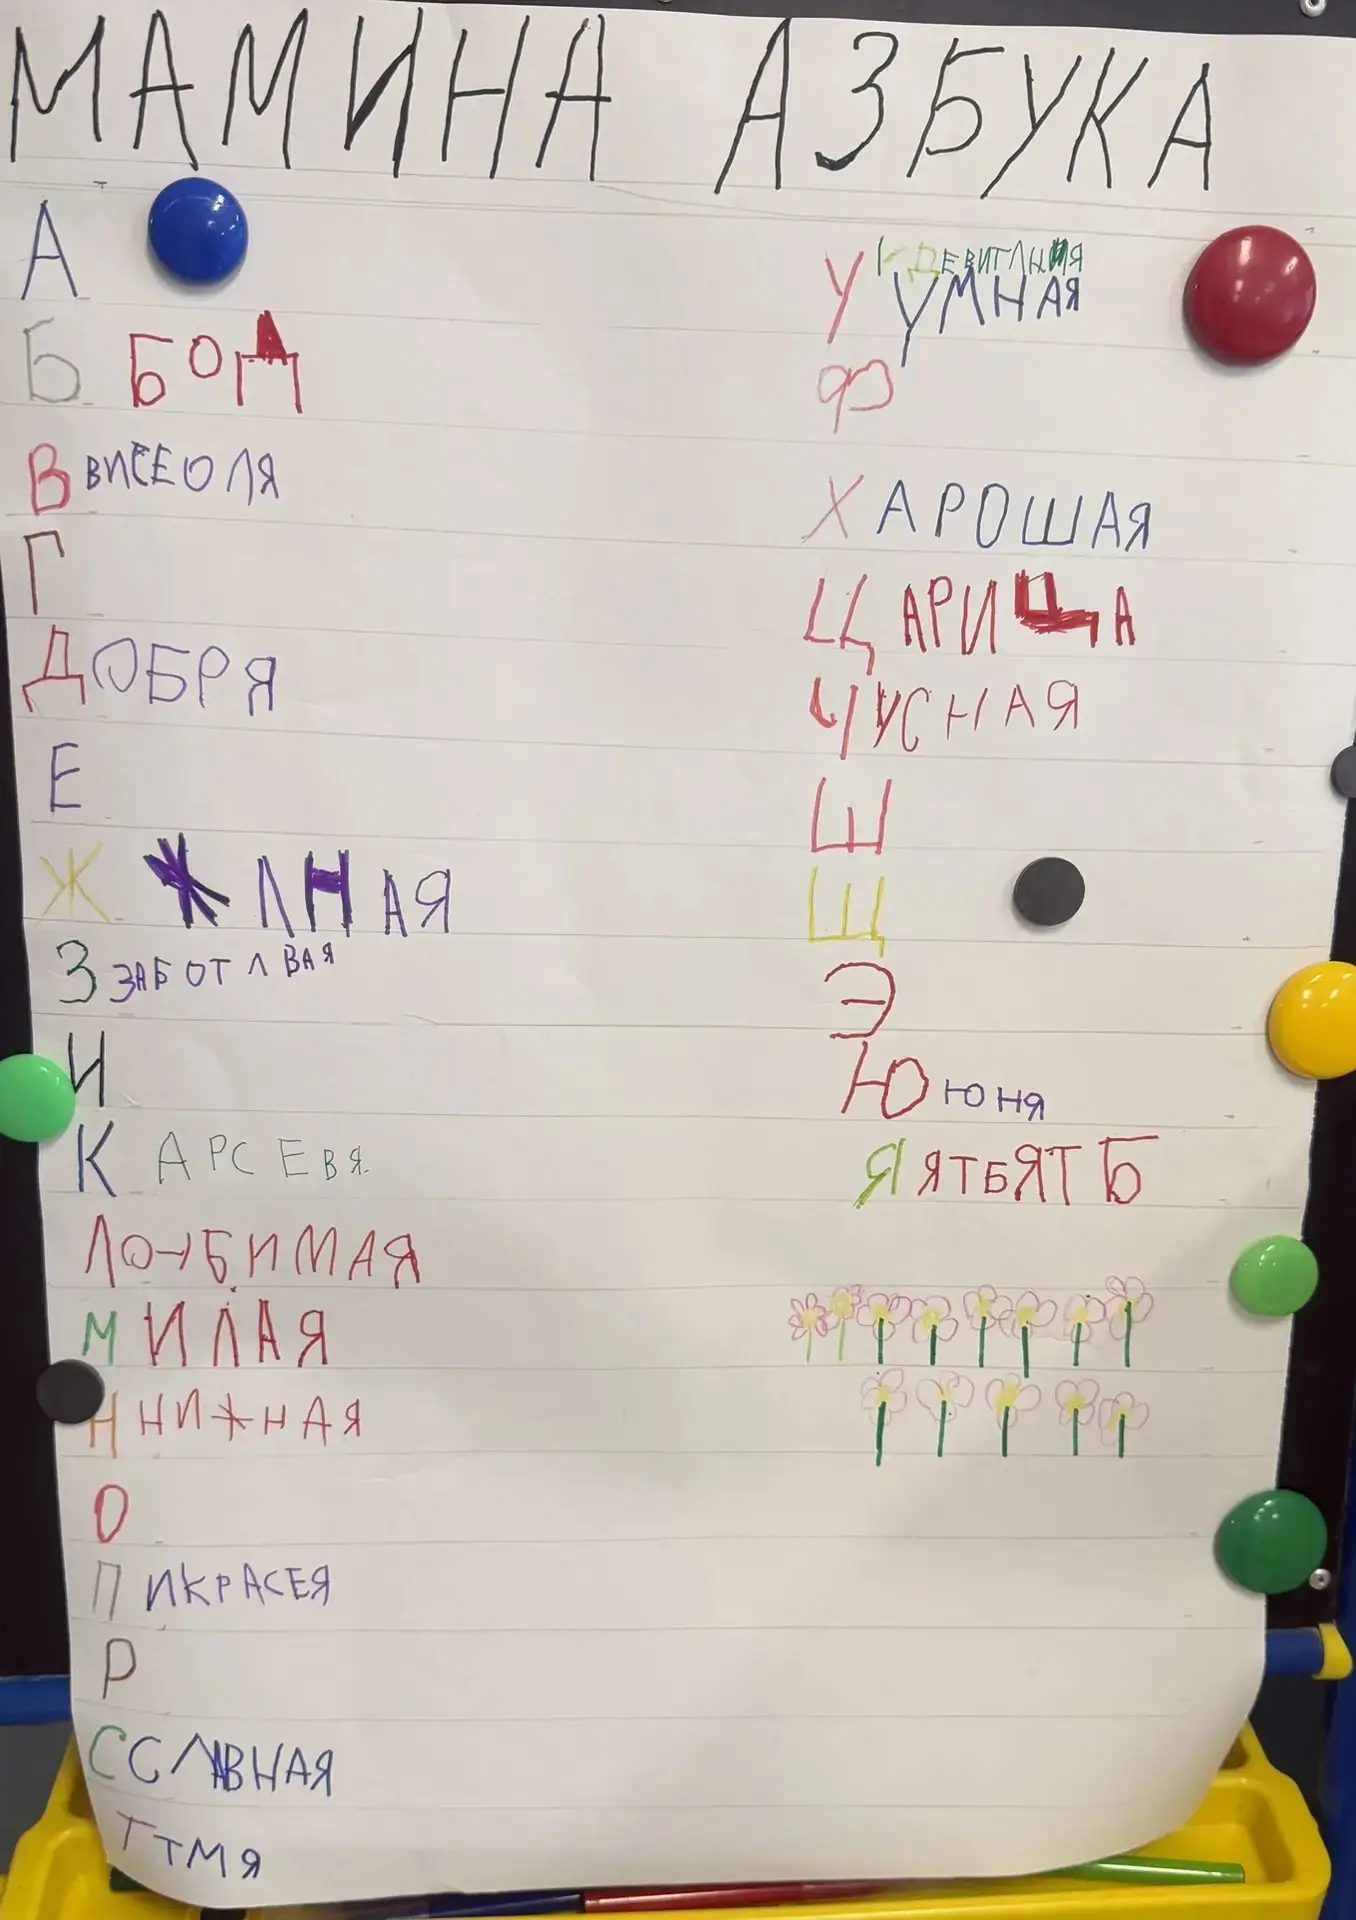 МАМИНА АЗБУКА
А
Б БОД
В ВИСЕОЛЯ
Г
ДОБРЯ
Е
Ж ЖЛНАЯ
З ЗАБОТЛВАЯ
И
КАРСЕВЯ
ЛЮБИМАЯ
МИЛАЯ
Н НИЖНАЯ
О
ПИКРАСЕЯ
Р
С СЛАВНАЯ
Т ТМЯ
У
УМНАЯ
Ф
ХАРОШАЯ
ЦАРИЦА
ЧУСНАЯ
Ш
Щ
Э
Ю ЮНЯ
Я ЯТБЯТБ